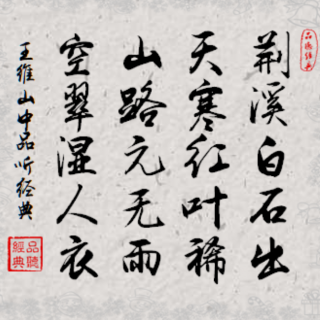 荆溪白石出
天寒红叶稀
山路元无雨
空翠湿人衣
王维山中品听经典
品聽經典
品聽經典